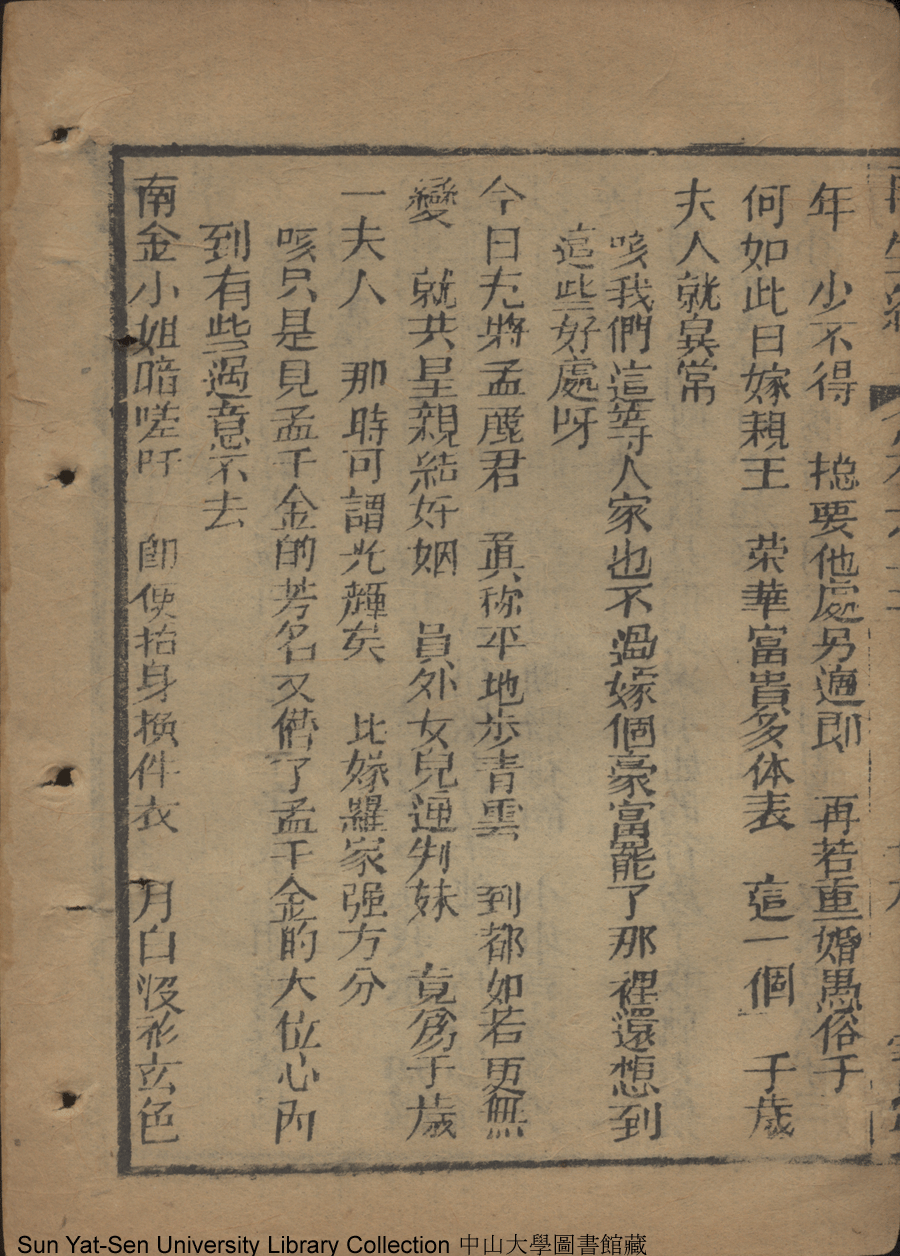 年 少不得 揔要他處另適即 再若重婚愚俗子
何如此日嫁親王 荣華富貴多体表 這一個 千歲
夫人就異常
咳我們這等人家也不過嫁個豪富罷了那裡還想到
這些好處呀
今日充將孟麗君 真称平地步青雲 到都如若更無
變 就共皇親結好姻 員外女兒運判妹 竟為千歲
一夫人 那時可謂光輝矣 比嫁羅家强万分
咳只是見孟千金的芳名又借了孟千金的大位心內
到有些過意不去
南金小姐暗嗟吁 即便抬身換件衣 月白沒衫玄色
Sun Yat-Sen University Library Collection 中山大學圖書館藏